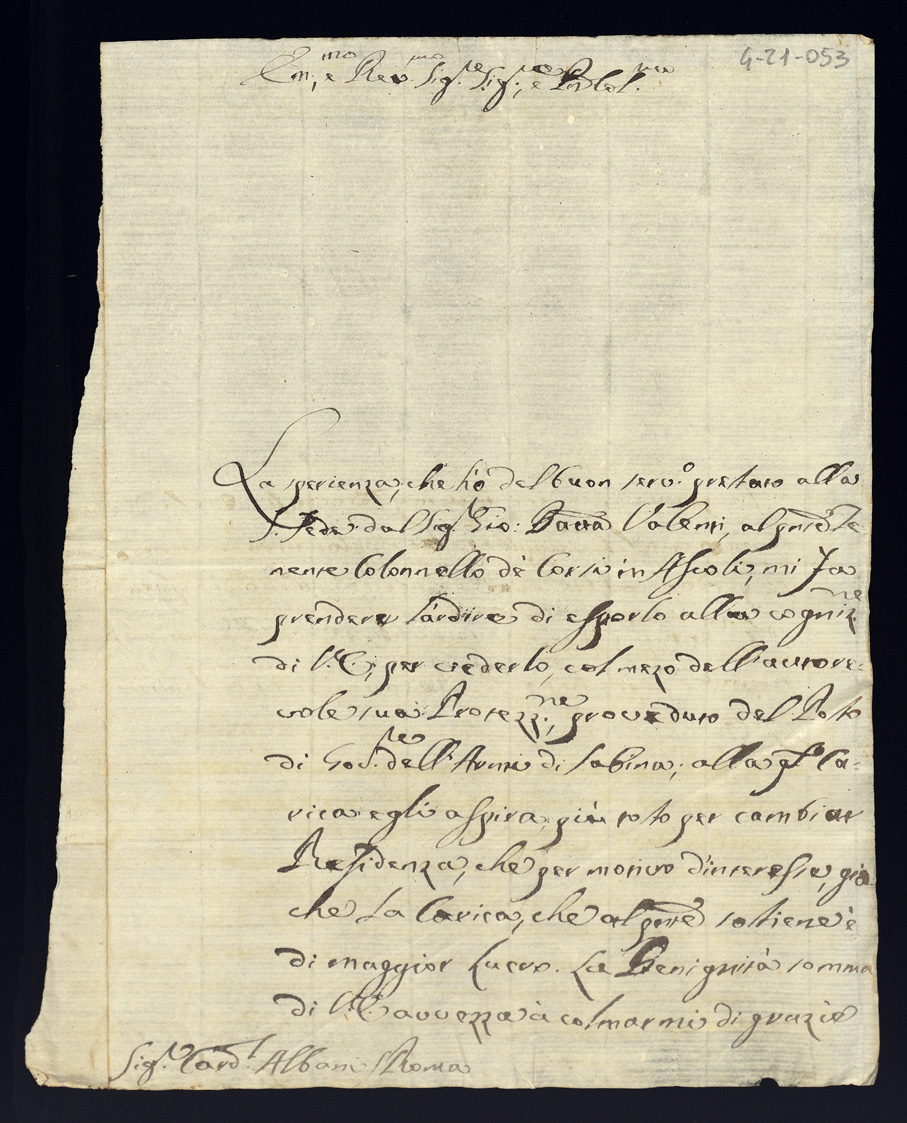 4-21-053
Em.mo, e Rev.mo Sig.re Sig.re, e Pron Col.mo
La sperienza, che hò del buon serv.o prestato alla
S. Sede dal Sig.r Gio: Batta Valenti, al pnte Te
nente Colonnello de Corsi in Ascoli, mi fa
prendere l'ardire di esporlo alla cogniz.ne
di V.E., per vederlo, col mezo dell'autore:
vole sua Protezz.ne, proveduto del Posto
di Gov.re dell'Armi di Sabina; alla qle Ca-
rica egli aspira, più tosto per cambiar
Residenza, che per motivo d'interesse, già
che La Carica, che al pnte sostiene è
di maggior Lucro. La Benignità somma
di V.E. avvezza à colmarmi di grazie
Sig.r Card.l Albani Roma